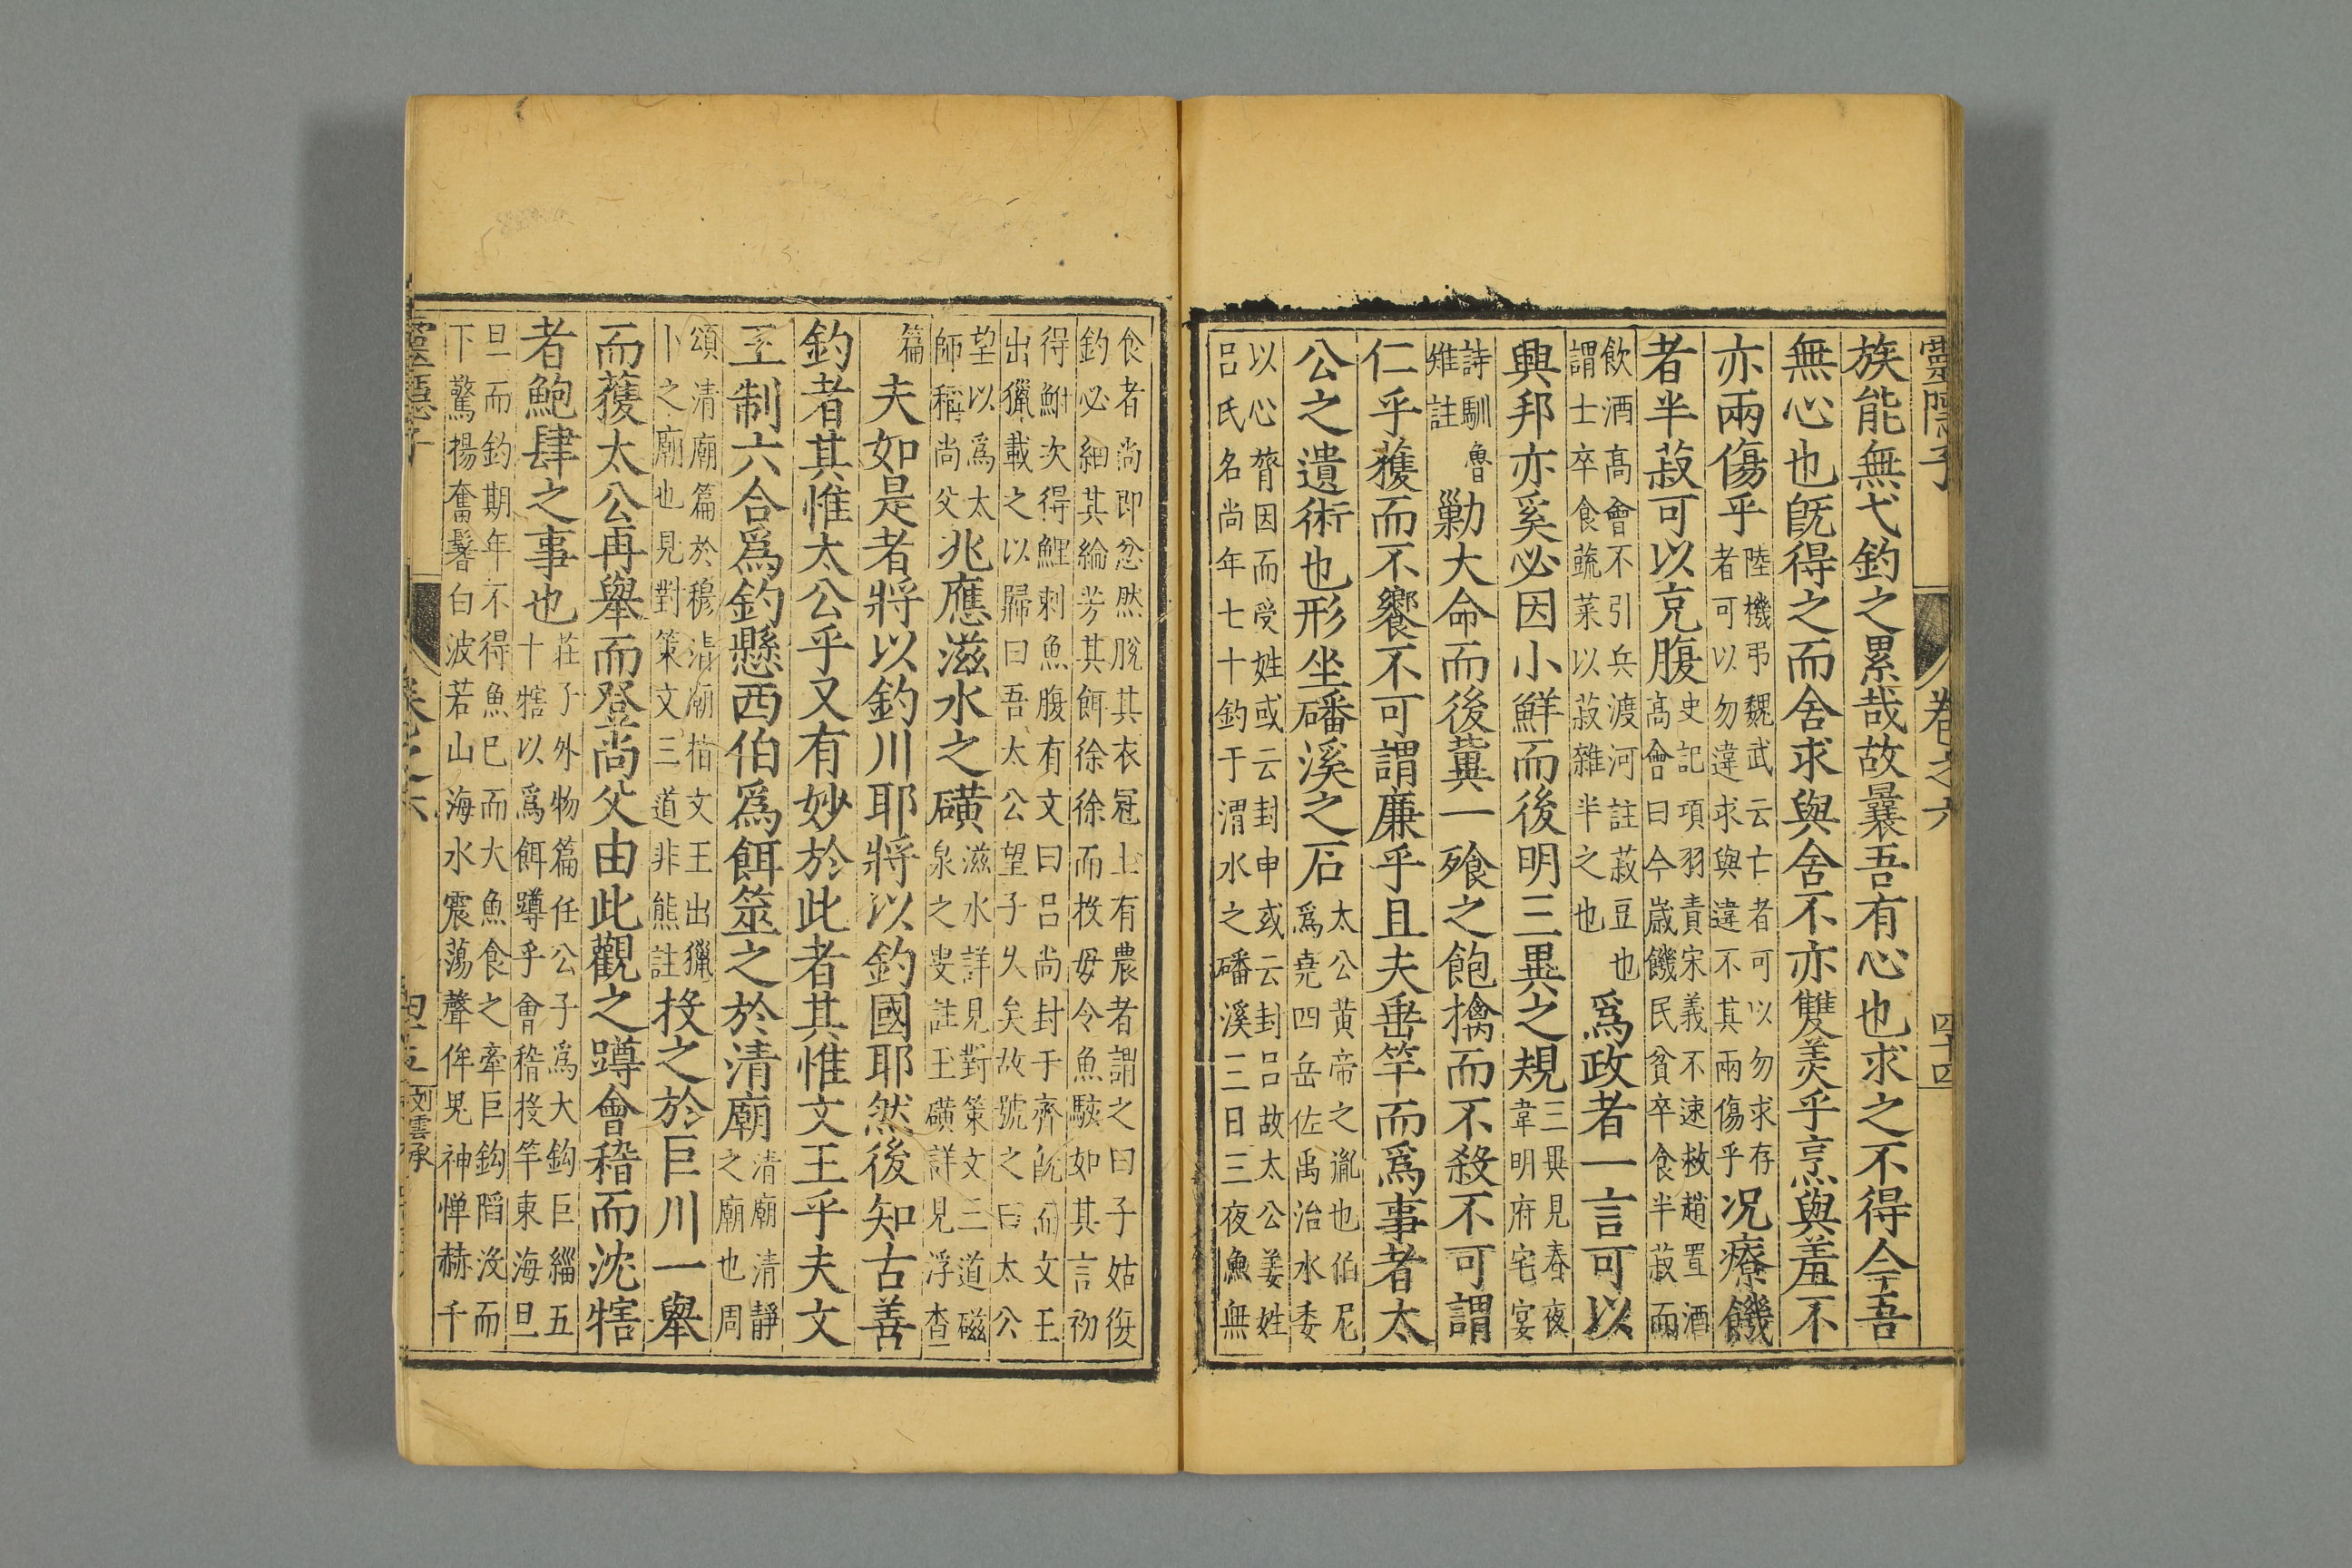 靈隱子
卷之六
四十四
族能無弋釣之累哉故曩吾有心也求之不得今吾
無心也旣得之而舍求與舍不亦雙美乎烹與羞不
亦兩傷乎陸機弔魏武云亡者可以勿求存者可以勿違求與違不其兩傷乎況療饑
者半菽可以充腹史記項羽責宋義不速救趙置酒高會曰今歲饑民貧卒食半菽而
飲酒高會不引兵渡河註菽豆也謂士卒食蔬菜以菽雜半之也爲政者一言可以
興邦亦奚必因小鮮而後明三異之規三異見春夜韋明府宅宴
詩馴雉註魯勦大命而後冀一飱之飽擒而不殺不可謂
仁乎獲而不饗不可謂廉乎且夫垂竿而爲事者太
公之遺術也形坐磻溪之石太公黃帝之胤也伯尼爲堯四岳佐禹治水委
以心膂因而受姓或云封申或云封呂故太公姜姓呂氏名尚年七十釣于渭水之磻溪三日三夜魚無
食者尚即忿然脫其衣冠上有農者謂之曰子姑復釣必細其綸芳其餌徐徐而投毋令魚駭如其言初
得鮒次得鯉刺魚腹有文曰呂尚封于齊旣而文王出獵載之以歸曰吾太公望子久矣故號之曰太公
望以爲太師稱尚父兆應滋水之磺滋水詳見對策文三道磁泉之叟註玉磺詳見浮査
篇夫如是者將以釣川耶將以釣國耶然後知古善
釣者其惟太公乎又有妙於此者其惟文王乎夫文
王制六合爲釣懸西伯爲餌筮之於清廟清廟清靜之廟也周
頌清廟篇於穆清廟指文王出獵卜之廟也見對策文三道非熊註投之於巨川一舉
而獲太公再舉而登尚父由此觀之蹲會稽而沈犗
者鮑肆之事也莊子外物篇任公子爲大鈎巨緇五十犗以爲餌蹲乎會稽投竿東海旦
旦而釣期年不得魚已而大魚食之牽巨鈎䧟沒而下驚揚奮鬐白波若山海水震蕩聲侔鬼神憚赫千
靈隱子
卷之六
四十五
刘雲承